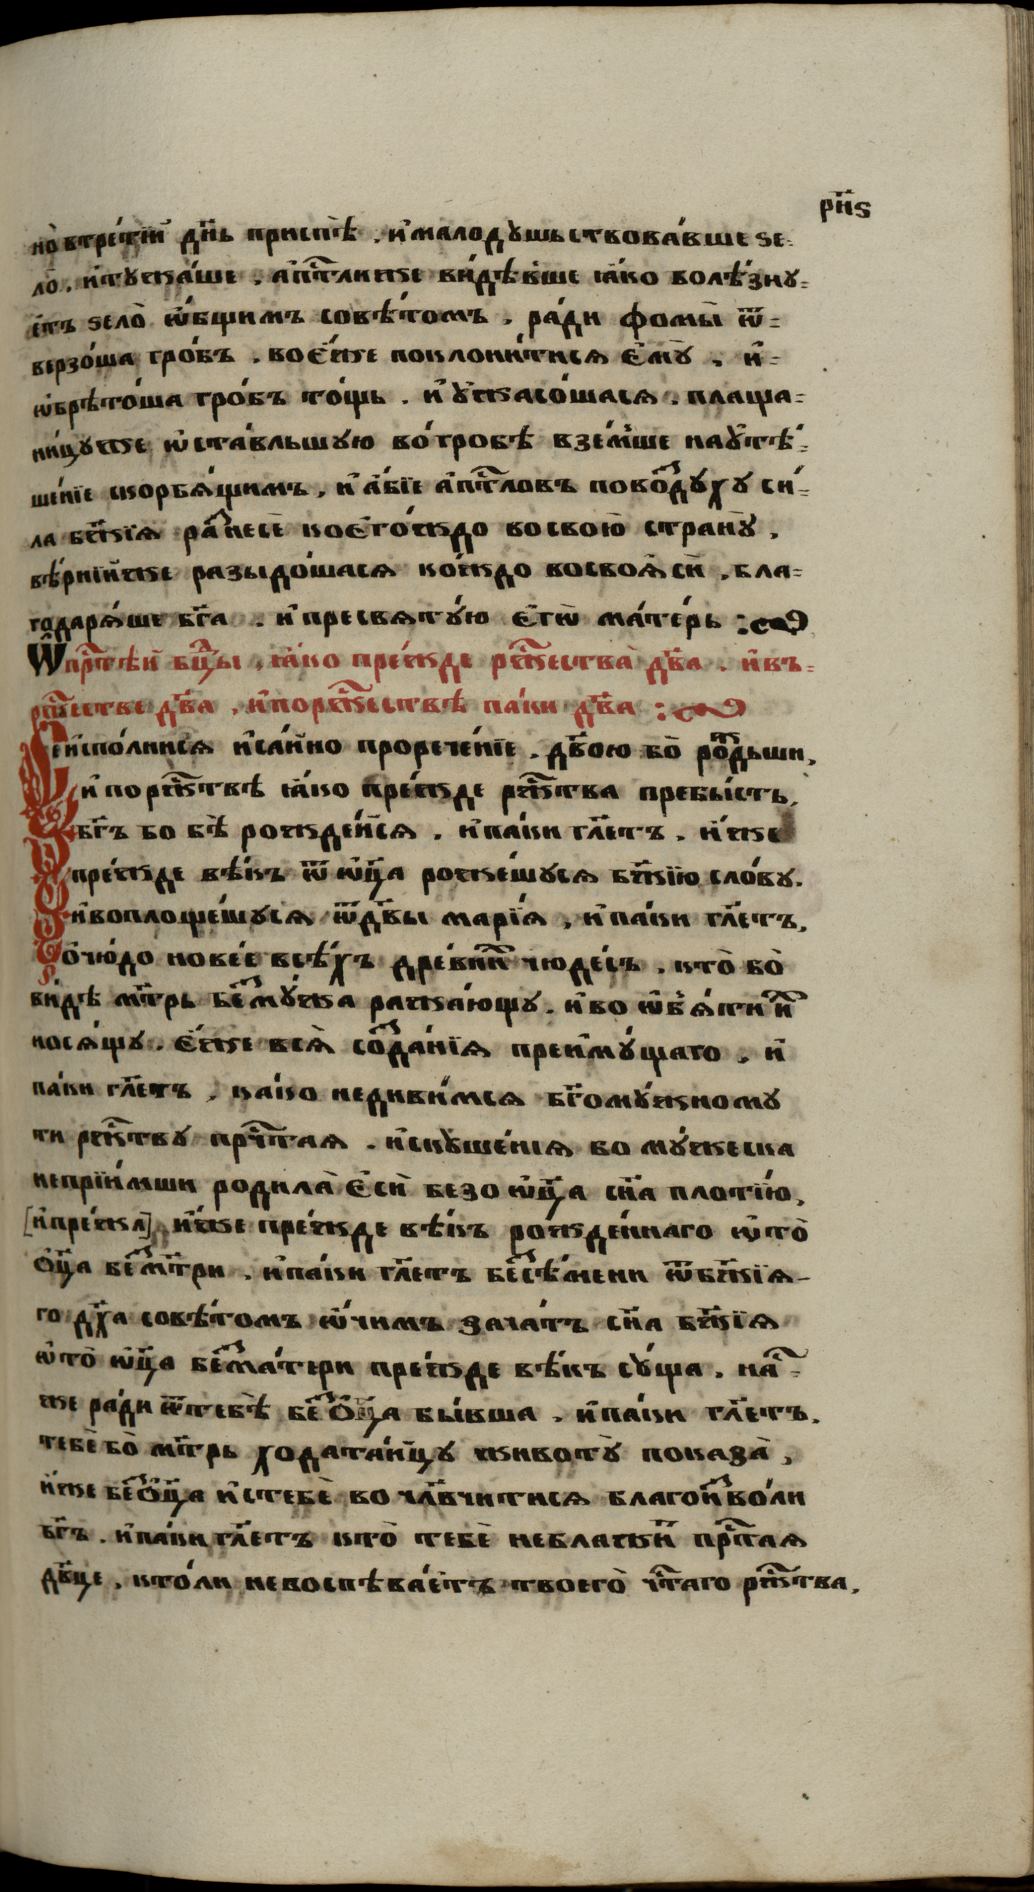 рн҃ѕ
но̀ втре́тїй дн҃ь приспѣ̀ . и҆малодушьствова́вше ѕе-
ло̀ . и҆тужа́ше . а҆пⷭ҇тлиже ви́дѣвше ꙗ҆́ко болѣ́зну-
етъ ѕело̀ ѡ҆́бщимъ совѣ́томъ . ра́ди фомы̀ ѿ-
верзо́ша гро́бъ . воє҆́же поклони́тися є҆мꙋ̀ , и҆-
ѡ҆брѣто́ша гро́бъ то́щь . и҆ ᲂу҆жасо́шася . плаща-
ни́цуже ѡ҆ста́вльшую во́гробѣ взе́мше наᲂу҆тѣ-
ше́нїе скорбя́щимъ , и҆ а҆́бїе а҆пⷭ҇тловъ повоⷥ҇духу си́-
ла бж҃їя раⷥ҇несѐ коєго́ждо восвою̀ странꙋ̀ ,
вѣ́рнїиже разыдо́шася ко́ждо восвоя҆сѝ , бла-
годаря́ще бг҃а . и҆пресвяту́ю є҆гѡ̀ ма́терь :
Ѡ҆прⷭ҇тѣй бцⷣы , ꙗ҆́ко пре́жде ржⷭ҇ества̀ дв҃а . и҆въ-
ржⷭ҇естве дв҃а , и҆поржⷭ҇ествѣ̀ па́ки дв҃а :
Сеи҆спо́лнися и҆са́йно прорече́нїе . дв҃ою бо̀ роⷤ҇дьши ,
и҆ поржⷭ҇твѣ̀ ꙗ҆́ко пре́жде ржⷭ҇тва пребы́сть ,
бг҃ъ бо бѣ̀ рожде́йся . и҆па́ки гл҃етъ . и҆́же
пре́жде вѣ́къ ѿ ѻц҃а рожⷲ҇шуся бж҃їю сло́ву .
и҆воплоще́шуся ѿ дв҃ы марі́я , и҆па́ки гл҃етъ ,
ѻ҆чю́до нове́е всѣ́хъ дре́внихъ чюде́съ . кто̀ бо̀
ви́дѣ мт҃рь беⷥ҇му́жа ражⷣа́ющу . и҆во ѡ҆б̾я́тии҆
нося́щу . є҆́же вся̀ соⷥ҇да́нїя преи҆му́щаго , и҆
па́ки гл҃етъ , ка́ко недиви́мся бг҃ому́жному
ти ржⷭ҇тву прⷭ҇чтая . и҆скуше́нїя бо му́жеска
непрїи́мши родила̀ є҆сѝ безо ѻц҃а сн҃а пло́тїю ,
[и҆пре́жⷣ] и҆́же пре́жде вѣ́къ ро́жденнаго ѡ҆то̀
ѻц҃а беⷥ҇мт҃ри . и҆па́ки гл҃етъ беⷥ҇сѣ́мени ѿбж҃їя-
го дх҃а совѣ́томъ ѻ҆́чимъ зача́тъ сн҃а бж҃їя
ѡ҆то̀ ѻц҃а беⷥ҇ма́тери пре́жде вѣ́къ су́ща . наⷭ҇-
же ра́ди ѿтебѣ̀ беⷥ҇ѻц҃а бы́вша . и҆па́ки гл҃етъ ,
тебѐ бо̀ мт҃рь ходата́ицу животꙋ̀ показа̀ ,
и҆́же беⷥ҇ѻц҃а и҆стебѐ во чл҃вчитися благои҆ⷥ҇во́ли
бг҃ъ . и҆па́ки гл҃етъ кто̀ тебѐ неблажи́тъ прⷭ҇тая
дв҃це . кто́ли невоспѣва́етъ твоего̀ чⷭ҇таго ржⷭ҇тва ,